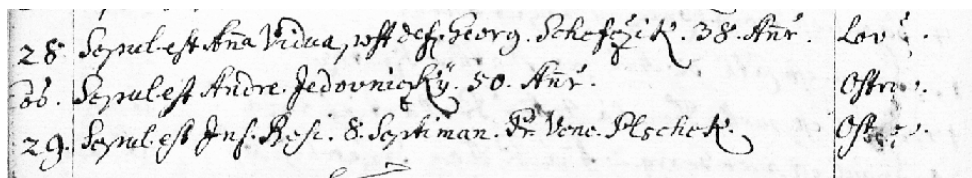 28. Sepul. est Aña Vidua, post def. Georg. Schefčzik. 38. Añr. Lov
eo. Sepul. est Andre. Jedovniczky. 50. Añr. Ostro
29. Sepul. est Inf. Resi. 8. Septiman. Pr. Venc. Plschek. Ost